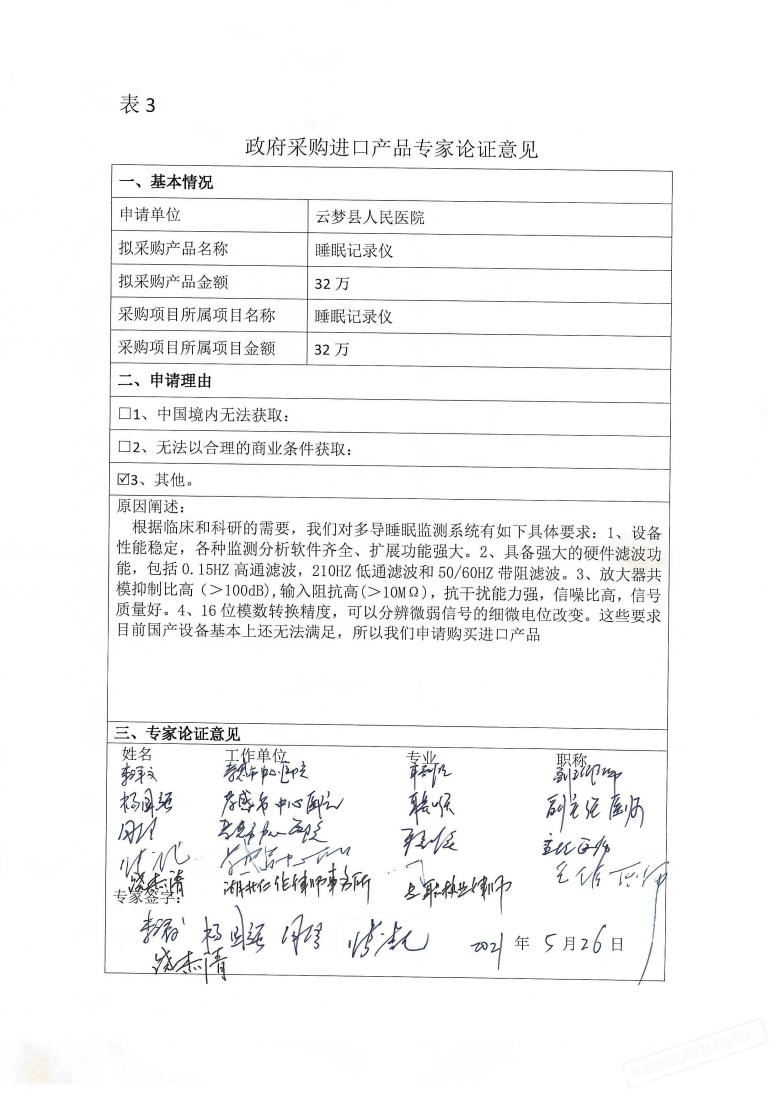 表 3
政府采购进口产品专家论证意见
一、基本情况
申请单位 云梦县人民医院
拟采购产品名称 睡眠记录仪
拟采购产品金额 32 万
采购项目所属项目名称 睡眠记录仪
采购项目所属项目金额 32 万
二、申请理由
☐1、中国境内无法获取：
☐2、无法以合理的商业条件获取：
☑3、其他。
原因阐述：
根据临床和科研的需要，我们对多导睡眠监测系统有如下具体要求：1、设备
性能稳定，各种监测分析软件齐全、扩展功能强大。2、具备强大的硬件滤波功
能，包括 0.15HZ 高通滤波，210HZ 低通滤波和 50/60HZ 带阻滤波。3、放大器共
模抑制比高（>100dB),输入阻抗高(>10MΩ)，抗干扰能力强，信噪比高，信号
质量好。4、16 位模数转换精度，可以分辨微弱信号的细微电位改变。这些要求
目前国产设备基本上还无法满足，所以我们申请购买进口产品
三、专家论证意见
姓名 工作单位 专业 职称
孝感市中心医院
杨国强 孝感市中心医院 副主任医师
孝感市中心医院 主任医师
饶杰清 湖北仁佳律师事务所 专职执业律师
专家签字：
杨国强 2021 年 5 月 26 日
饶杰清